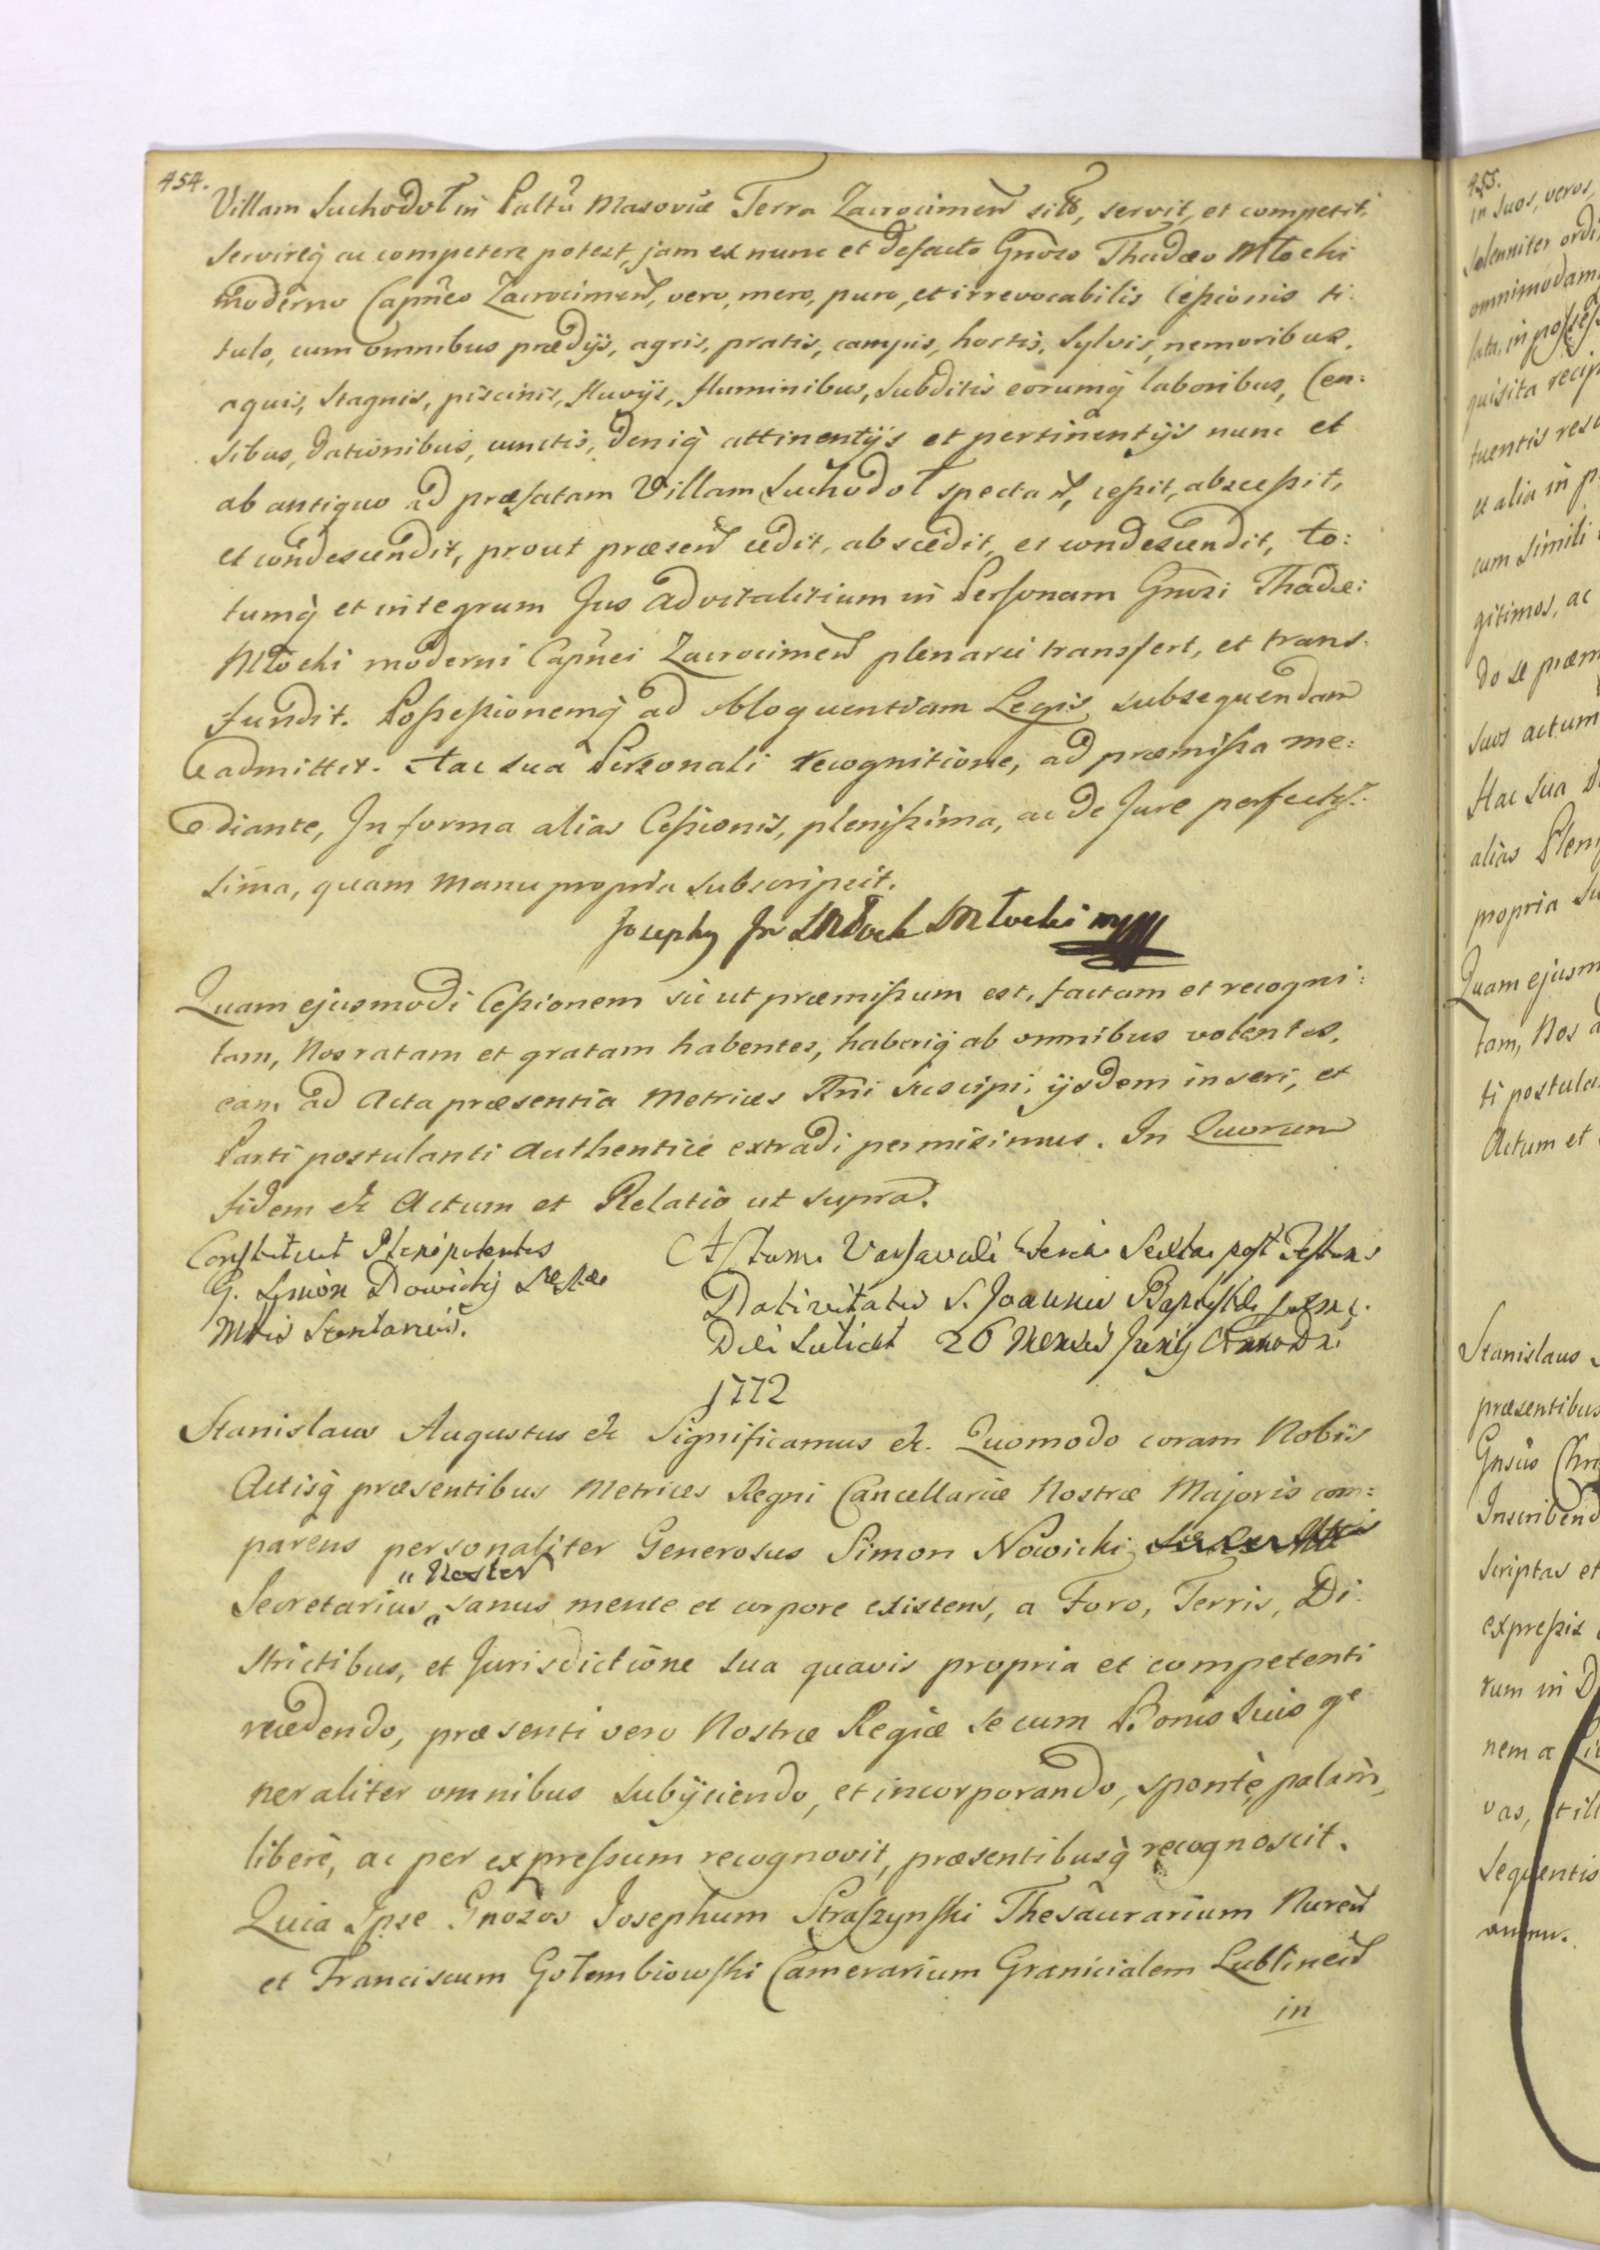 454.
Villam Suchodoł in Paltũ Masoviæ Terra Zacrocimeñ sitõ, servit, et competit,
servireq̃ ac competere potest, jam ex nunc et defacto Gnõso Thadæo Młocki
moderno Capñeo Zacrocimeñ, vero, mero, puro, et irrevocabilis Cessionis ti:
tulo, cum omnibus prædijs, agris, pratis, campis, hortis, Sylvis, nemoribus,
aquis, Stagnis, piscinis, fluvijs, fluminibus, Subditis eorumq̃ laboribus, Cen:
sibus, dationibus, cunctis, deniq̃ attinentijs et pertinentijs nunc et
ab antiquo ad præfatam Villam Suchodoł spectañ, cessit, abscessit,
et condescendit, prout præseñ cedit, abscedit, et condescendit, to:
tumq̃ et integrum Jus advitalitium in Personam Gnõsi Thadæi
Młocki moderni Capñei Zacrocimeñ plenarie transfert, et trans:
fundit. Possessionemq̃ ad obloquentiam Legis subsequendam
admittit. Hac sua Personali recognitione, ad præmissa me:
diante, In forma alias Cessionis, plenissima, ac de Jure perfectis:
sima, quam manu propria subscripsit.
Josephg Jn Młock Młocki mp
Quam ejusmodi Cessionem sic ut præmissum est, factam et recogni:
tam, Nos ratam et gratam habentes, haberiq̃ ab omnibus volentes,
eam ad Acta præsentia Metrices Rñi suscipi, ijsdem inseri, et
Parti postulanti authentice extradi permisimus. In Quorum
fidem &c Actum et Relatio ut supra.
Constituit Plenipotentes
G. Simon Nowicky SRæ
Mttis Secretarius.
Actum Varsaviæ Feria Sexta post Festum
Nativitatis S. Joannis Baptistæ prox̃.
Die scilicet 26 Mensis Junij Anno Dñi
1772
Stanislaus Augustus &c Significamus &c. Quomodo coram Nobis
Actisq̃ præsentibus Metrices Regni Cancellariæ Nostræ Majoris com:
parens personaliter Generosus Simon Nowicki
Secretarius „Noster„ sanus mente et corpore existens, a Foro, Terris, Di:
strictibus, et Jurisdictione sua quavis propria et competenti
recedendo, præsenti vero Nostræ Regiæ se cum Bonis Suis ge
neraliter omnibus subijciendo, et incorporando, spontè, palàm,
liberè, ac per expressum recognovit, præsentibusq̃ recognoscit.
Quia Ipse Gnõsos Josephum Straszynski Thesaurarium Nureñ
et Franciscum Gołembiowski Camerarium Granicialem Lublineñ
in
455.
in suos, veros,
solenniter ordi
omnimodam
lata, in posses
quisita recip
tuentis res
et alia in p
cum simili
gitimos, ac
do se præm
suos actum
Hac sua
alias Plen
propria su
Quam ejusm
tam, Nos
ti postula
Actum et
Stanislaus
præsentibus
Gnsus Chr
Inscribend
scriptas et
expressis
rum in D
nem a
vas,
sequentis